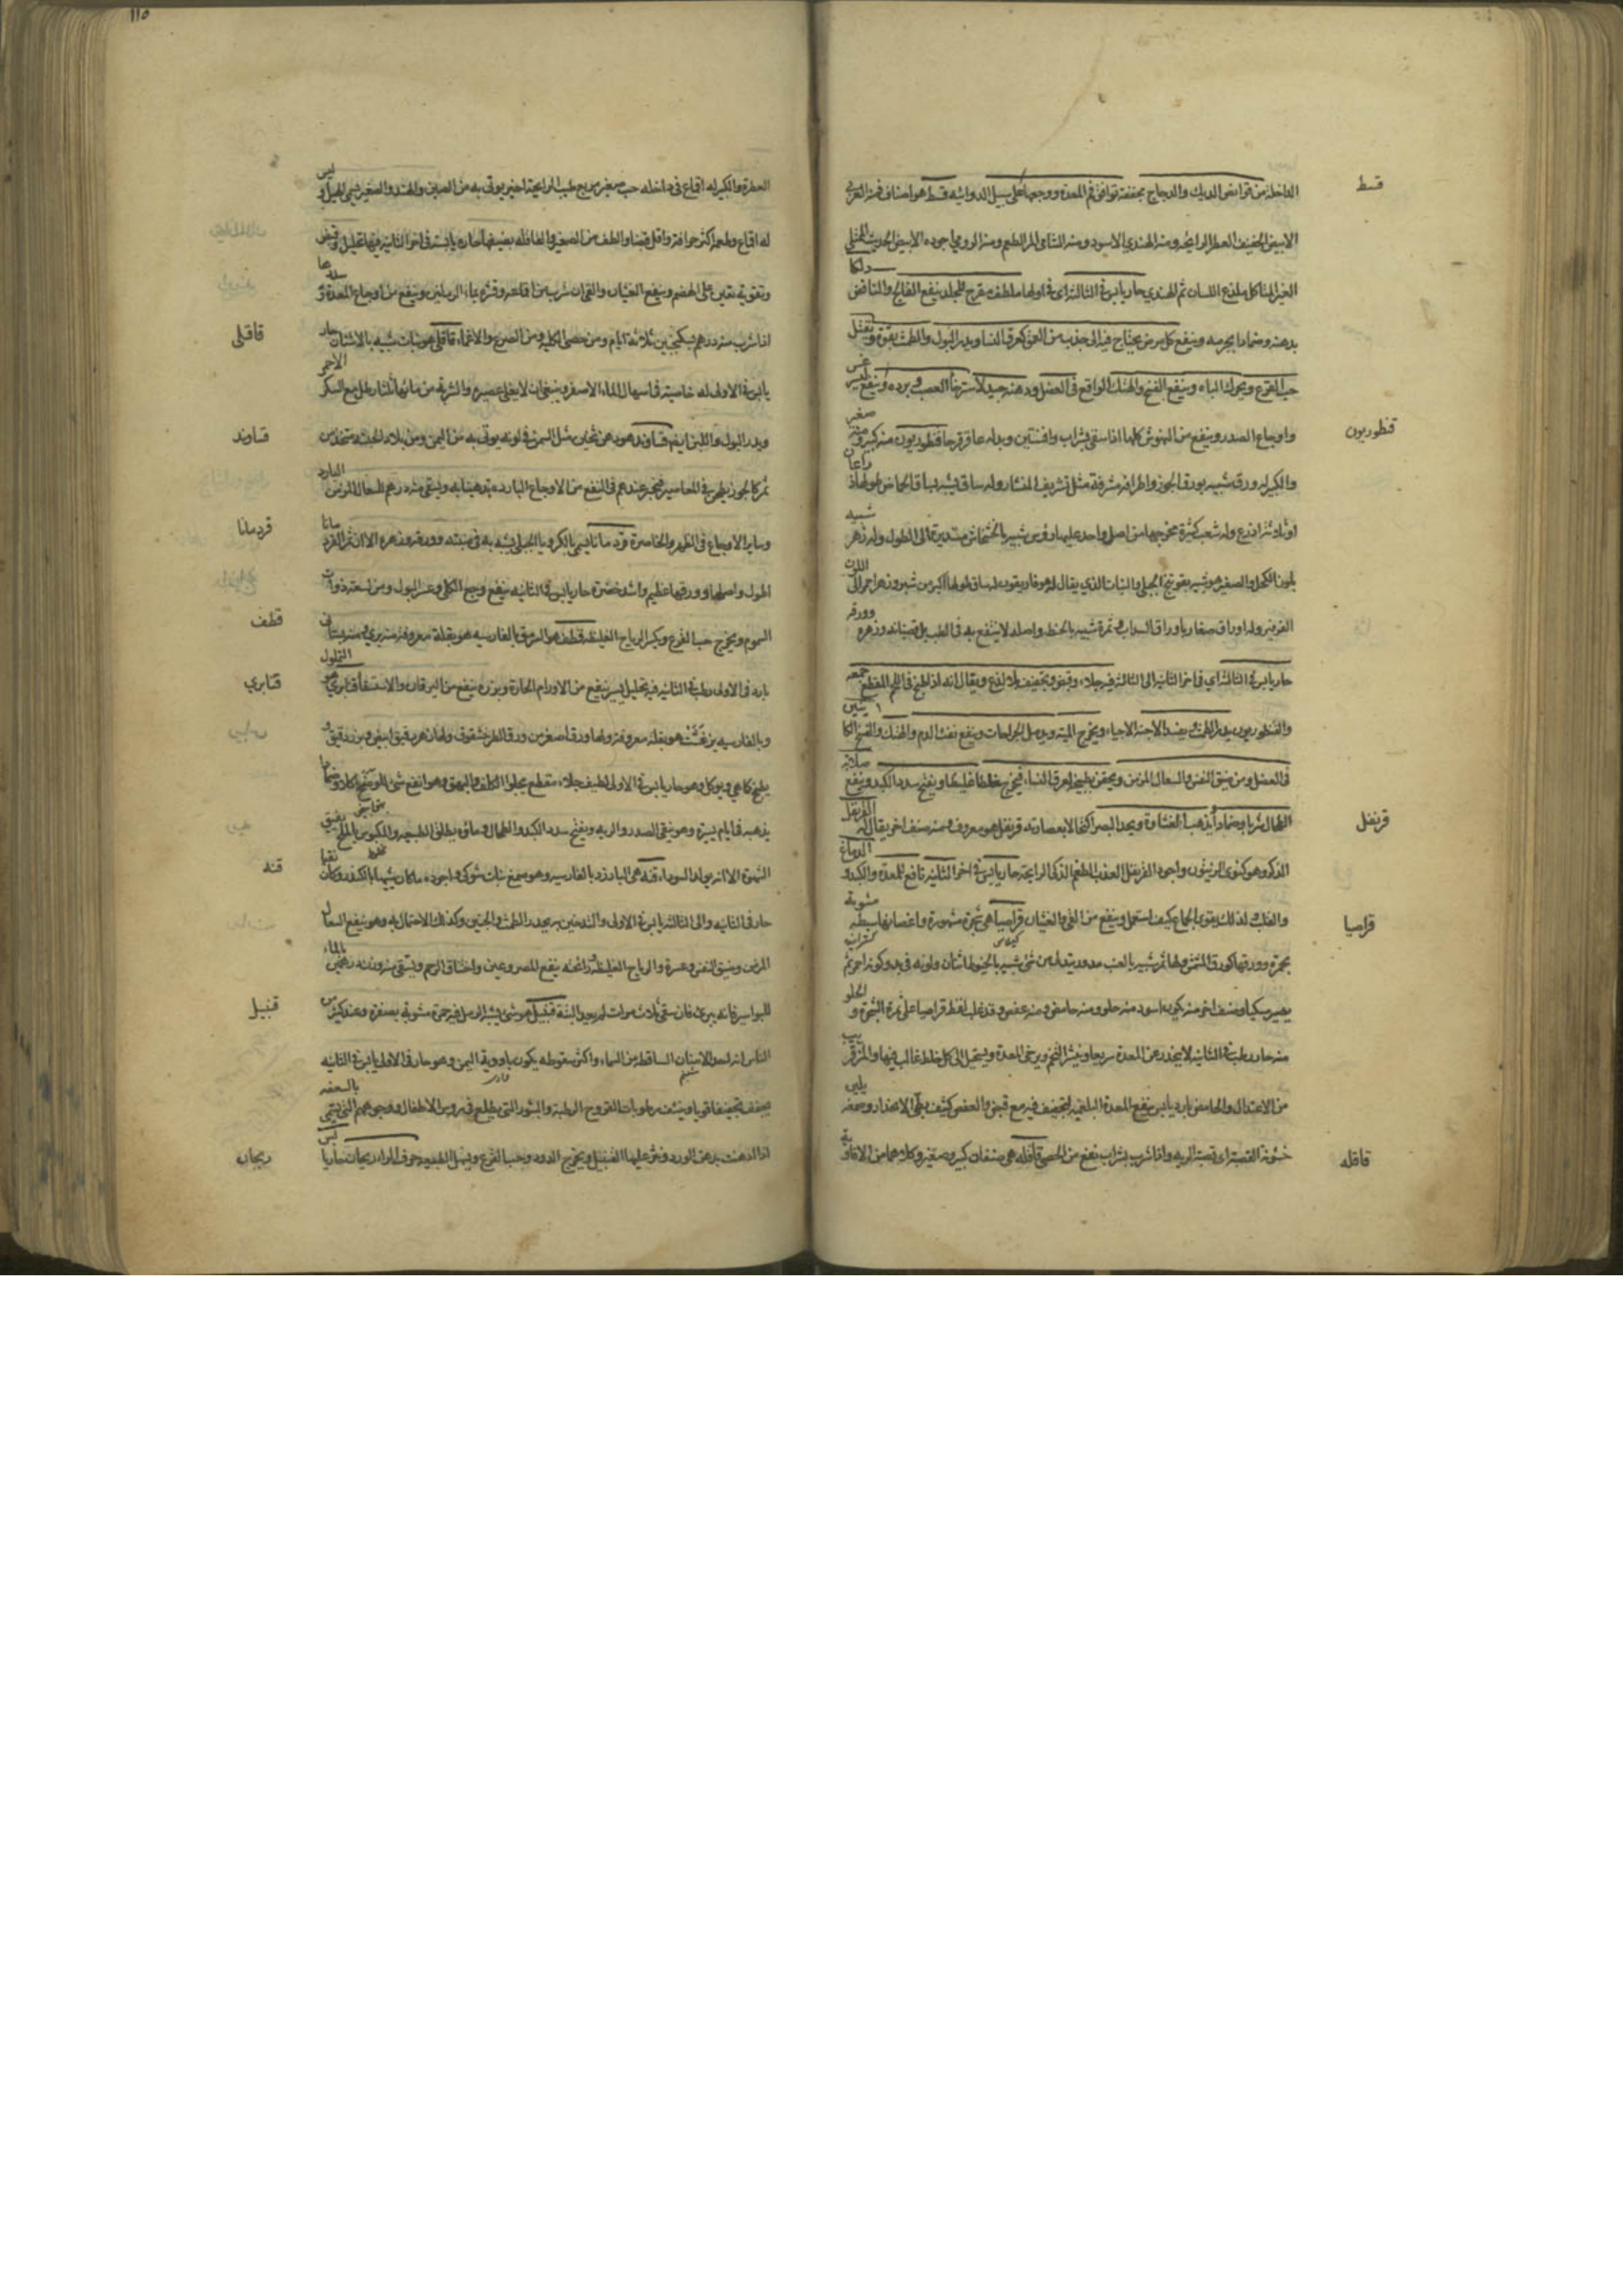 قسط
الداخلة من قوانص الديك والدجاج مجففة توافق فم المعدة ووجعها على سبيل الدوائية قسط هو اصناف فمنه العربي
الابيض الخفيف العطر الرايحة ومنه الهندي الاسود ومنه الشامى المر الطعم ومنه الرومي واجوده الابيض الحديث الممتلى
الغير المتاكل يلذع اللسان ثم الهندي حار يابس في الثالثة اي في اولها ملطف مقرح للجلد ينفع الفالج والنافض دلكا
بدهنه وضمادا بجرمه وينفع كل مرض يحتاج فيه الى جذب من العمق كعرق النسا ويدر البول والطمث بقوة ويقتل
حب القرع ويحرك الباه وينفع الفسخ والهتك الواقع في العضل ودهنه جيد لاسترخاء العصب وبرده وينفع
قنطوريون
واوجاع الصدر وينفع من النهوش كلها اذا سقى بشراب وافسنتين وبدله عاقرقرحا قنطوريون منه كبير ومنه صغير
والكبير له ورق شبيه بورق الجوز واطرافه مشرفة مثل تشريف المنشار وله ساق يشبه بساق الحماض طولها ذراعان
او ثلاثة اذرع وله شعب كثيرة مخرجها من اصل واحد عليها رؤس شبيه بالخشخاش مستديرة الى الطول وله زهر شبيه
بلون الكحل والصغير هو شبيه بفوتنج الجبلى والنبات الذي يقال له هوفاريقون له ساق طولها اكبر من شبر وزهر احمر الى اللون
الفرفير وله اوراق صغار باوراق السداب وثمرة شبيه بالحنطة واصله لا ينتفع به في الطب بل قضبانه وزهره وورقه
حار يابس في الثالثة اي في اخر الثانية الى الثالثة فيه جلاء وقبض وتجفيف بلا لذع ويقال انه اذا طبخ في اللحم المقطع جمعه
والقنطوريون يدر الطمث ويفسد الاجنة الاحياء ويخرج الميتة ويدمل الجراحات وينفع نفث الدم والهتك والفسخ
في العضل ومن ضيق النفس والسعال المزمن ويحقن بطبيخه لعرق النساء فيخرج خلطا غليظا ويفتح سدد الكبد وينفع صلابة
قرنفل
الطحال شربا وضمادا ويذهب الغشاوة ويحد البصر اكتحالا بعصارته قرنفل هو معروف ومنه صنف اخر يقال له القرنفل
الذكر وهو كنوى الزيتون واجود القرنفل العذب الطعم الذكي الرايحة حار يابس في اخر الثالثة نافع للمعدة والكبد والدماغ
قراصيا
والقلب ولذلك يقوى الجماع كيف استعمل وينفع من القي والغثيان قراصيا هي شجرة مشهورة واغصانها سبطة مشوبة
بحمرة وورقها كورق المشمش ولها ثمر شبيه بالعنب مدور يتدلى من شى شبيه بالخيوط اثنان ولونه في بدو كونه احمر ثم
يصير مسكيا وصنف اخر منه يكون اسود منه حلو ومنه حامض ومنه عفص وقد غلب لفظ قراصيا على ثمرة الشجرة والحلو
منه حار رطب في الثانية لا ينحدر عن المعدة سريعا وينشر التخم ويرخى المعدة ويستحيل الى كل خلط غالب فيها والمز قريب
من الاعتدال والحامض بارد يابس ينفع المعدة البلغمية لتجفيف فيه مع قبض والعفص كثيف بطئ الانحدار وصمغه يلين
قاقله
خشونة القصبة اي قصبة الرية واذا شرب بشراب نفع من الحصى قاقله هي صنفان كبير وصغير وكلاهما من الافاوية
العطرة والكبير له اقماع في داخله حب صغير مربع طيب الرايحة اغبر يوتى به من الصين والهند والصغير يسمى الهيل وليس
له اقماع وطعمه اكثر حرافة واقل قبضا والطف من الصغير والقاقلة بصنفيها حارة يابسة في اخر الثانية فيها تحليل وقبض
وتقوية تعين على الهضم وينفع الغثيان والقى ان شرب من اقماعه وقشره بماء الرمانين وينفع من اوجاع المعدة
قاقلى
اذا شرب منه درهم بسكنجبين ثلاثة ايام ومن حصى الكلية ومن الصرع والاغماء قاقلى هو نبات شبيه بالاشنان حار
يابس في الاولى له خاصية في اسهال الماء الاصفر وينبغى ان لا يغلى عصيره والشربة من مائها ثلثا رطل مع السكر الاحمر
قناوند
ويدر البول واللبن ايضا قناوند هو دهن ثخين مثل السمن في لونه يوتى به من اليمن ومن بلاد الحبشة متخذ من
ثمر كالجوز يطحن في المعاصير مجرب عندهم في النفع من الاوجاع الباردة تدهينا به ويسقى منه درهم للسعال المزمن البارد
قردمانا
وساير الاوجاع في الظهر والخاصرة قردمانا يسمى بالكرويا الجبلى يشبه به في منبته وورقه وزهره الا ان ثمر القردمانا
اطول واصلها وورقها عظيم واشد خضرة حار يابس في الثانية ينفع وجع الكلى وعسر البول ومن لسعته ذوات
قطف
السموم ويخرج حب القرع ويكسر الرياح الغليظة قطف هو السرمق بالفارسية هو بقلة معروفة منه بري ومنه بستانى
قنابري
بارد في الاولى رطب في الثانية فيه تحليل يسير ينفع من الاورام الحارة وبزره ينفع من اليرقان والاستسقا قنابري هو التملول
وبالفارسيه برغشت هو بقلة معروفة ولها ورق اصغر من ورق الطرخشقوق ولها زهر دقيق ابيض وبزر دقيق
يطبخ كما هي ويوكل وهو حار يابس في الاولى لطيف جلاء مقطع يجلوا الكلف والبهق وهو انفع شى للوضح اكلا وضمادا
يذهبه في ايام يسيرة وهو ينقى الصدر والرية ويفتح سدد الكبد والطحال وماؤه يطلق الطبيعة والمكبوس بالملح يفتق
قنه
الشهوة الا انه يولد السوداء قنه هي البارزد بالفارسيه وهو صمغ نبات شوكى واجوده ما كان شبيها بالكندر وكان نقيا
حار في الثانيه والى الثالثه يابس في الاولى والتدخين به يحدر الطمث والجنين وكذلك الاحتمال به وهو ينفع السعال
المزمن وضيق النفس وعسره والرياح الغليظة رائحته ينفع للمصروعين واختناق الرحم ويسقى منه وزن درهمين بالماء
قنبيل
للبواسير فانه يبرئ فان سقى ثلاث مرات لم يعد البتة قنبيل هو شئ يشبه الرمل فيه حمرة مشوبة بصفرة وعند كثير من
الناس انه احد الامنان الساقطة من السماء واكثر سقوطه يكون باودية اليمن وهو حار في الاولى يابس في الثانيه
يجفف تجفيفا قويا وينشف رطوبات القروح الرطبة والبثور التى يطلع في روس الاطفال ووجوههم التى يسمى بالسعفه
ريحان
اذا ادهنت بدهن الورد ونثر عليها القنبيل ويخرج الدود وحب القرع ويسهل الطبيعة حرف الراء ريحان حار يابس